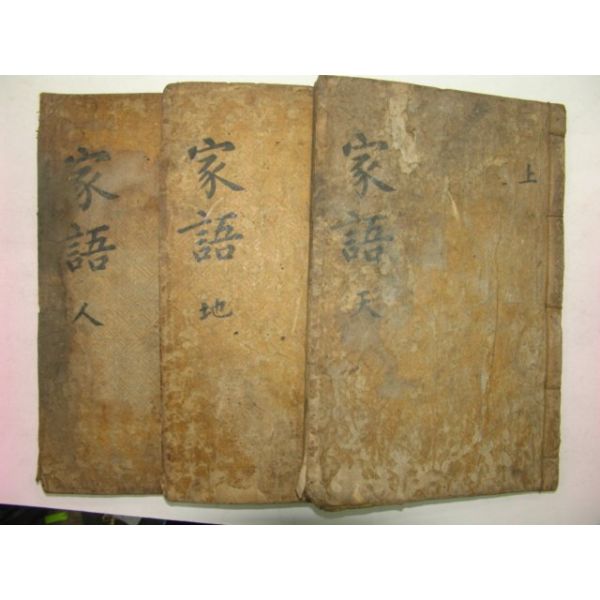 家語 天
上
家語 地
家語 人